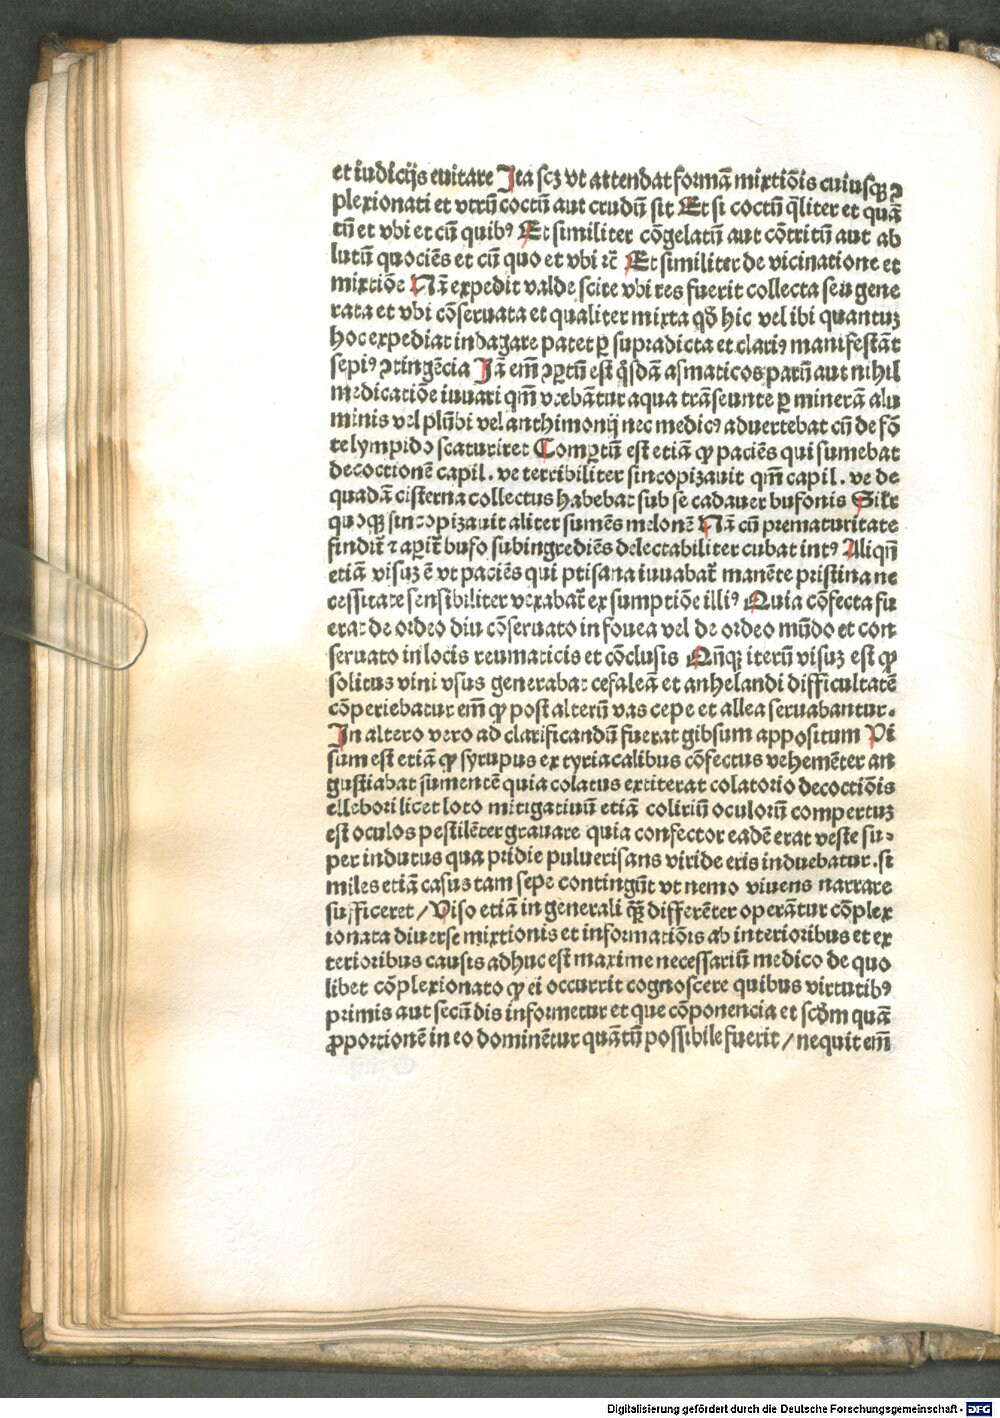 et iudicijs euitare Ita scꝫ vt attendat formã mixtiõis cuiusqꝫ ↄ
plexionati et vtrũ coctũ aut crudũ sit Et si coctũ q̃liter et quã
tũ et vbi et cũ quibꝰ Et similiter cõgelatũ aut cõtritũ aut ab
lutũ quociẽs et cũ quo et vbi ⁊c̃ Et similiter de vicinatione et
mixtiõe Nã expedit valde scire vbi res fuerit collecta seu gene
rata et vbi cõseruata et qualiter mixta qð hic vel ibi quantuꝫ
hoc expediat indagare patet ꝑ supradicta et clariꝰ manifestãt
sepiꝰ ↄtingẽcia Iã em̃ ↄꝑtũ est q̃sdã asmaticos parũ aut nihil
medicatiõe iuuari qm̃ vtebãtur aqua trãseunte ꝑ minerã alu
minis vel plũbi vel anthimonij nec medicꝰ aduertebat cũ de fõ
te lympido scaturiret Comꝑtũ est etiã ꝙ paciẽs qui sumebat
decoctionẽ capil. ve terribiliter sincopizauit qm̃ capil. ve de
quadã cisterna collectus habebat sub se cadauer bufonis Silr
quoqꝫ sincopizauit aliter sumẽs melonẽ Nã cũ prematuritate
findit̃ ⁊ aꝑit̃ bufo subingrediẽs delectabiliter cubat intꝰ Aliqñ
etiã visuꝫ ẽ vt paciẽs qui ptisana iuuabat̃ manẽte pristina ne
cessitate sensibiliter vexabat̃ ex sumptiõe illiꝰ Quia cõfecta fu
erat de ordeo diu cõseruato in fouea vel de ordeo mũdo et con
seruato in locis reumaticis et cõclusis Qñqꝫ iterũ visuꝫ est ꝙ
solitus vini vsus generabat cefaleã et anhelandi difficultatẽ
cõperiebatur em̃ ꝙ post alterũ vas cepe et allea seruabantur.
In altero vero ad clarificandũ fuerat gibsum appositum Vi
sum est etiã ꝙ syrupus ex tyriacalibus cõfectus vehemẽter an
gustiabat sumentẽ quia colatus extiterat colatorio decoctiõis
ellebori licet loto mitigatiuũ etiã coliriũ oculorũ compertuꝫ
est oculos pestilẽter grauare quia confector eadẽ erat veste su⸗
per indutus qua pridie puluerisans viride eris induebatur. si
miles etiã casus tam sepe contingũt vt nemo viuens narrare
sufficeret / Viso etiã in generali qꝫ̃ differẽter operãtur cõplex
ionata diuerse mixtionis et informatiõis ab interioribus et ex
terioribus causis adhuc est maxime necessariũ medico de quo
libet cõplexionato ꝙ ei occurrit cognoscere quibus virtutibꝰ
primis aut secũdis informetur et que cõponencia et scðm quã
ꝓportionẽ in eo dominẽtur quãtũ possibile fuerit / nequit em̃
Digitalisierung gefördert durch die Deutsche Forschungsgemeinschaft - DFG